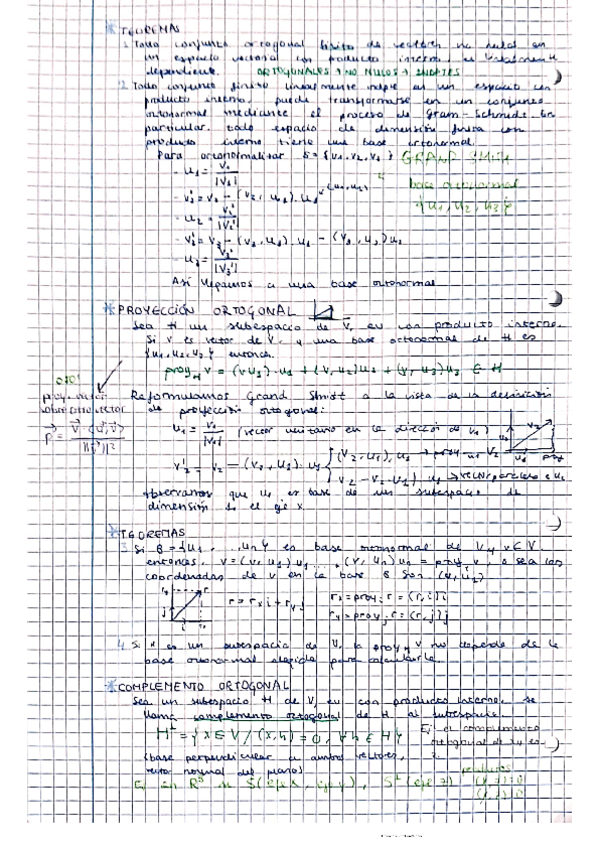 * TEOREMAS
1. Todo conjunto ortogonal finito de vectores no nulos en
un espacio vectorial con producto interno, es linealmente
dependiente. ORTOGONALES 1 NO NULOS
2. Todo conjunto finito linealmente indep en un espacio con
producto interno, puede transformarse en un conjunto
ortonormal mediante el proceso de Gram-Schmidt. En
particular, todo espacio de dimensión finita con
producto interno tiene una base ortonormal.
Para ortonormalizar S = {v1, v2, v3}
base ortonormal
{u1, u2, u3}
- u1 = v1/|v1|
- v2' = v2 - (v2, u1). u1
- u2 = v2'/|v2'|
- v3' = v3 - (v3, u1). u1 - (v3, u2) u2
- u3 = v3'/|v3'|
Así llegamos a una base ortonormal
* PROYECCIÓN ORTOGONAL
Sea H un subespacio de V, ev con producto interno.
Si v es vector de V, y una base ortonormal de H es
{u1, u2, u3} entonces.
proy_H v = (v u1) · u1 + (v, u2) u2 + (v, u3) u3 ∈ H
ojo!
proy. vector
sobre otro vector
Reformulamos Grand Shmit a la vista de la definición
de proyección ortogonal:
u1 = v1/|v1| (vector unitario en la dirección de v1)
v2' = v2 - (v2, u1). u1
observamos que u1 es base de un subespacio de
dimensión 1. el eje x
* TEOREMAS
3. Si B = {u1 ... un} es base ortonormal de V y v ∈ V.
entonces, v = (v, u1) u1 ... + (v, un) un = proy v, o sea las
coordenadas de v en la base B son (v, ui)
r = rx i + ry j
rx = proy i r = (r, i) i
ry = proy j r = (r, j) j
4. Si H es un subespacio de V, la proy_H v no depende de la
base ortonormal elegida para calcularla.
* COMPLEMENTO ORTOGONAL
Sea un subespacio H de V, ev con producto interno. se
llama complemento ortogonal de H al subespacio
H⊥ = {x ∈ V / (x, h) = 0, ∀h ∈ H}
Ej: el complemento
ortogonal de xy es
z
(base perpendicular a ambos vectores,
recta normal del plano)
Ej en R3 si S (eje x, eje y), S⊥ (eje z)